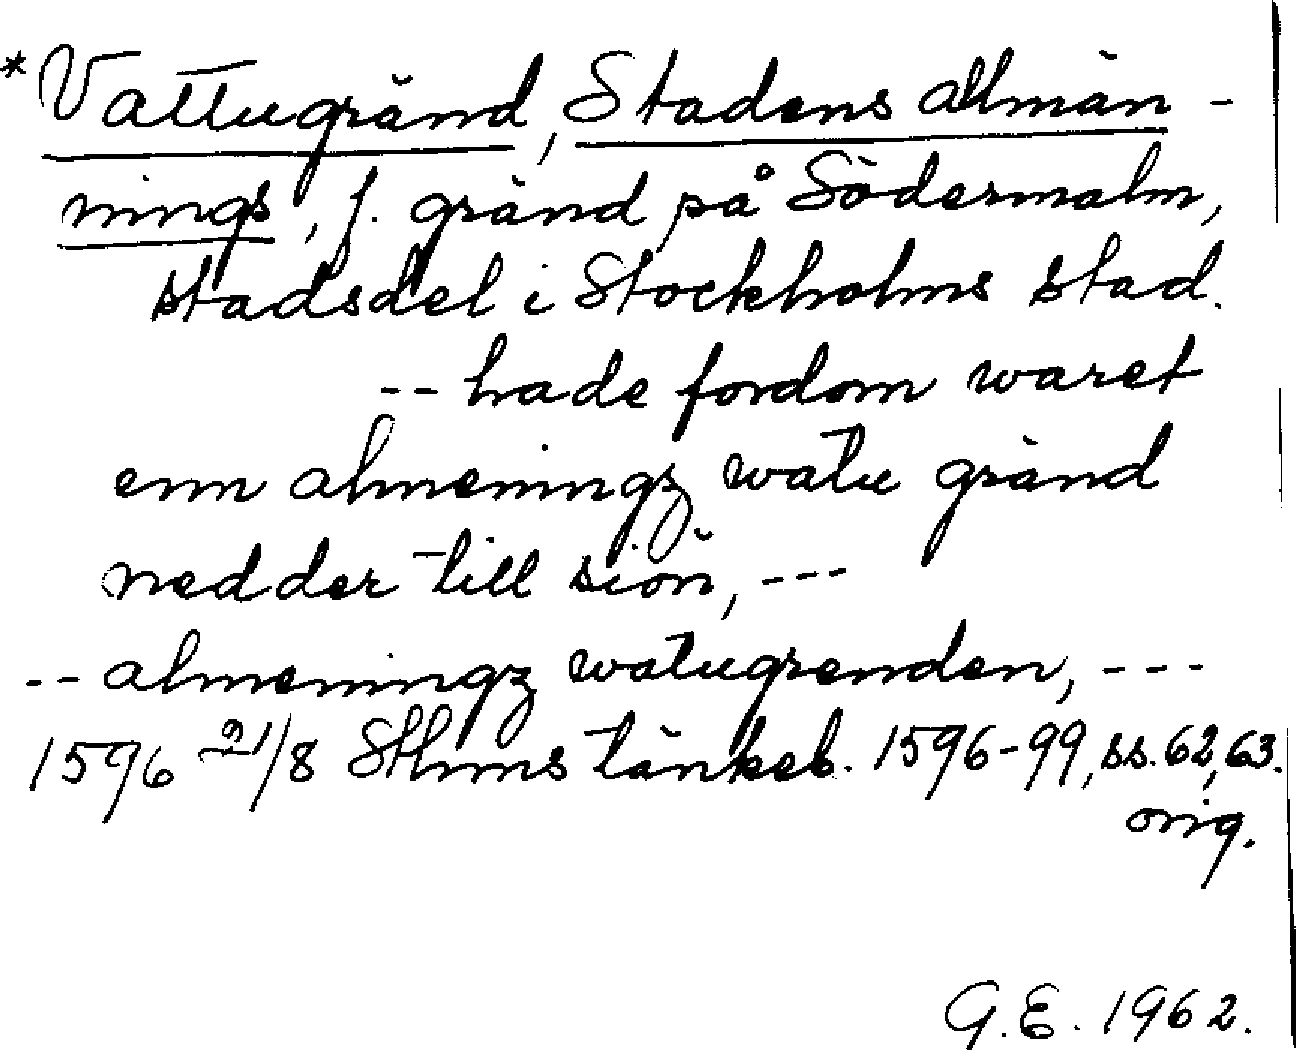 *Vattugränd, Stadens allmän-
nings, f. gränd på Södermalm,
stadsdel i Stockholms stad.
-- hade fordom waret
enn almeningz watu gränd
nedder till siön, ---
-- almeningz watugrenden, ---
1596 21/8 Sthms tänkeb. 1596-99, ss. 62, 63.
orig.
G.E. 1962.